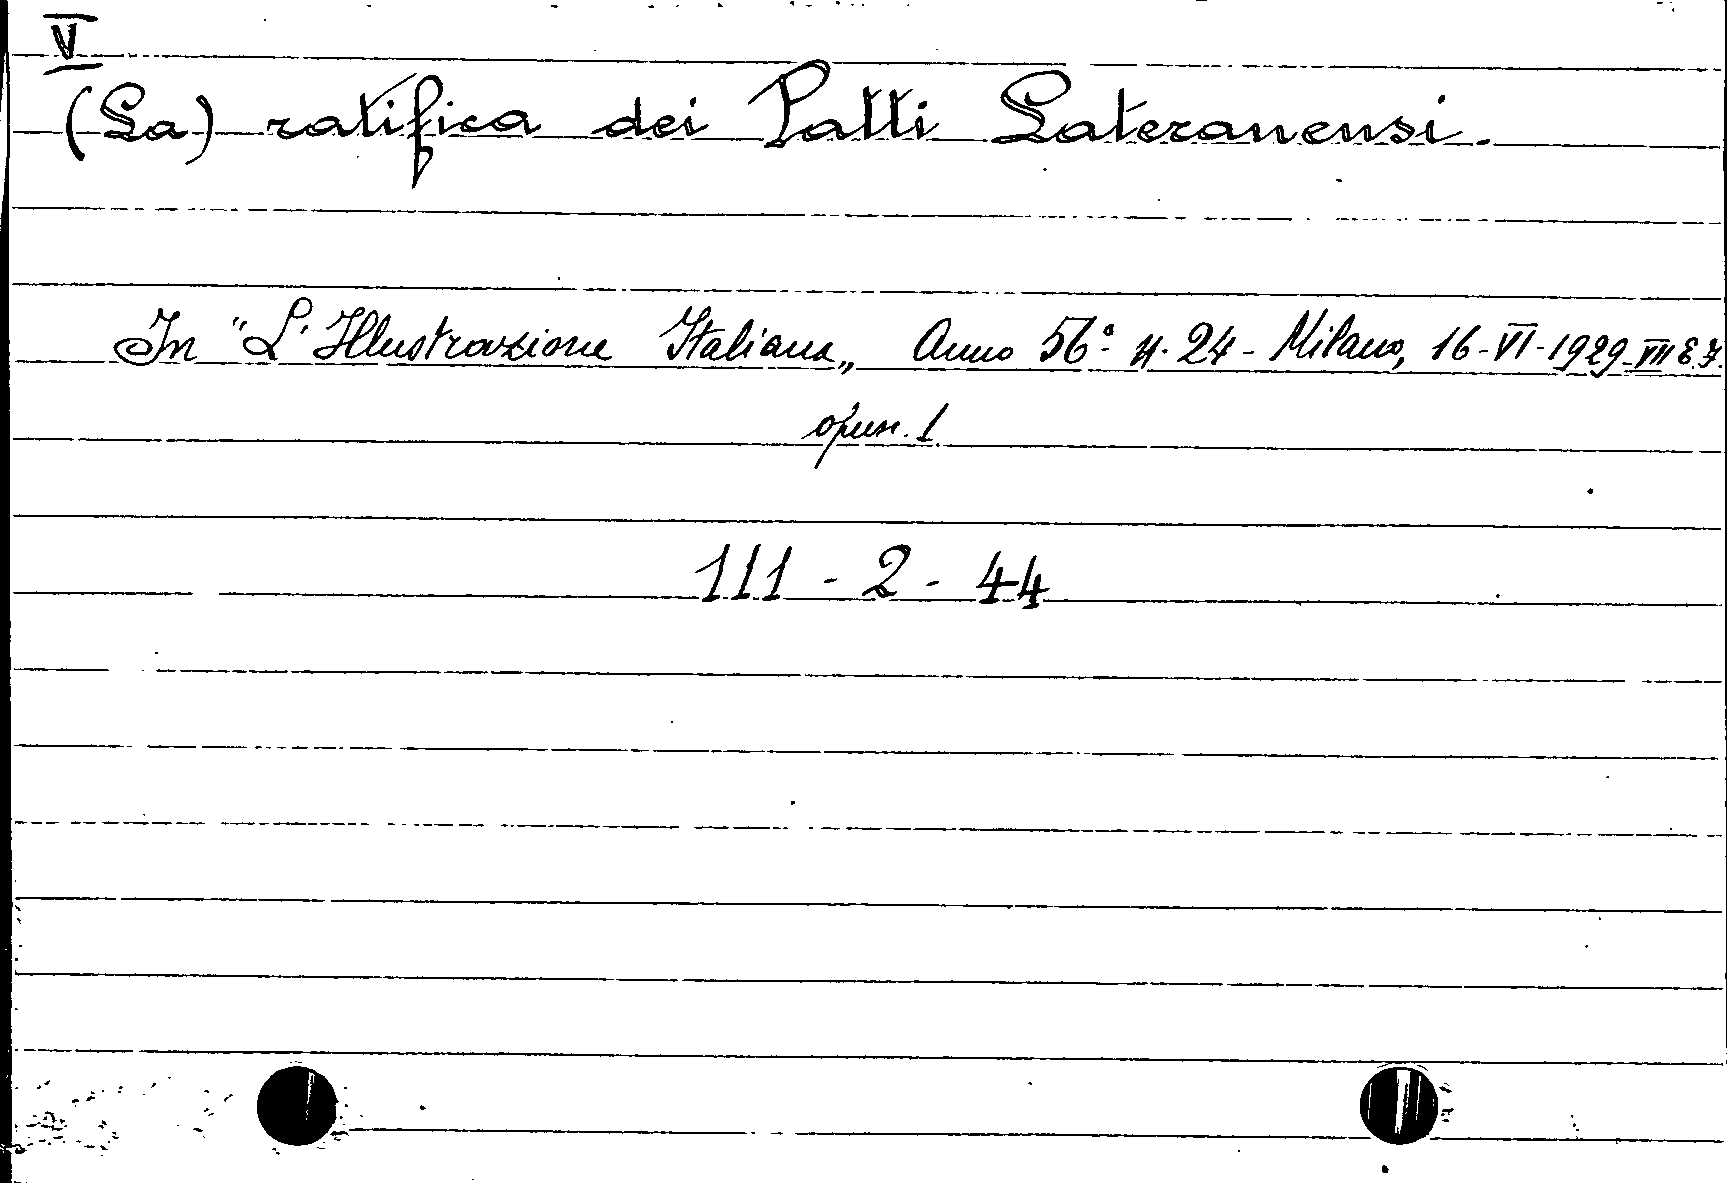 V
(La) ratifica dei Patti Lateranensi.
In "L'Illustrazione Italiana„ Anno 56° n. 24 - Milano, 16-VI-1929-VII E.F.
opusc. 1
111 - 2 - 44